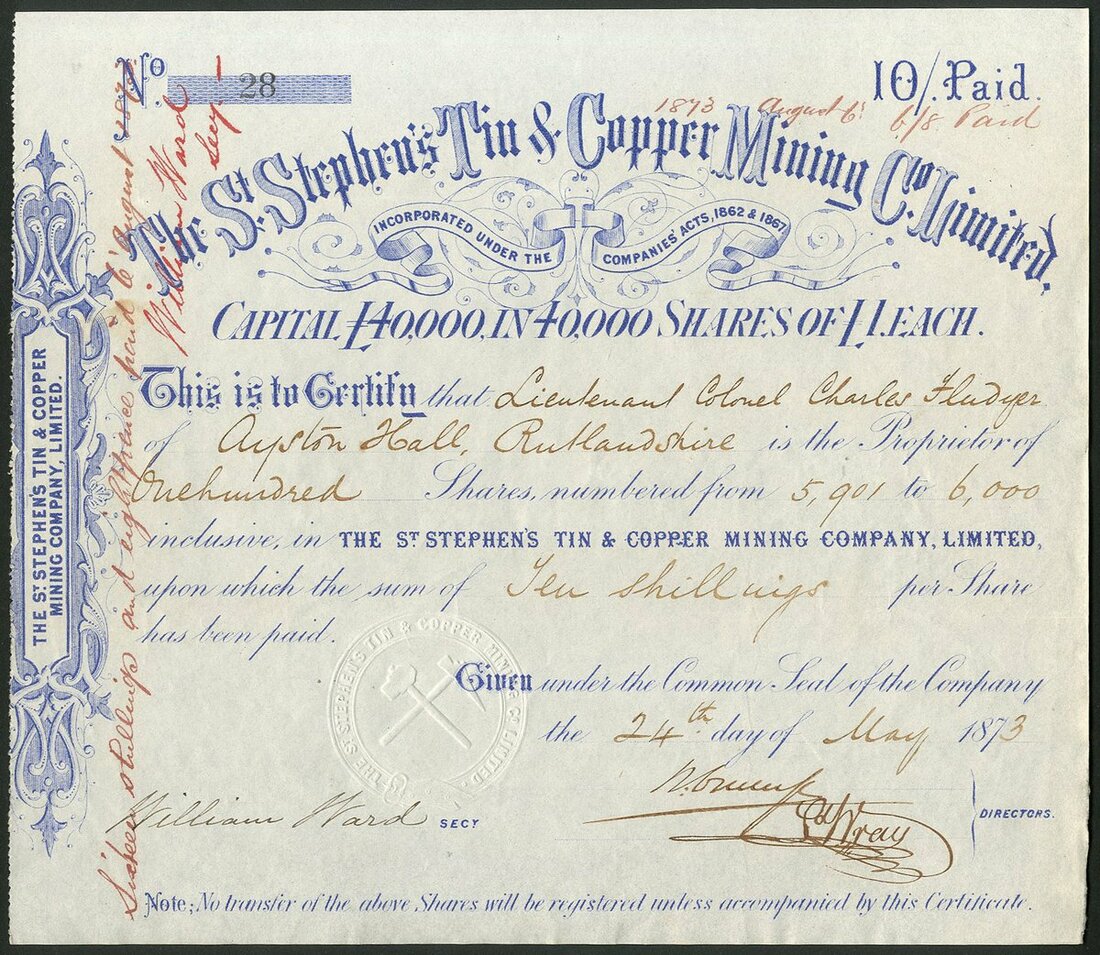 No. 28
10/. Paid.
1873 August 6: 6/8 Paid
The St. Stephen's Tin & Copper Mining Co. Limited.
INCORPORATED UNDER THE COMPANIES' ACTS, 1862 & 1867
CAPITAL £40,000, IN 40,000 SHARES OF £1. EACH.
This is to Certify that Lieutenant Colonel Charles Fludyer
of Ayston Hall, Rutlandshire is the Proprietor of
Onehundred Shares, numbered from 5,901 to 6,000
inclusive, in THE ST STEPHEN'S TIN & COPPER MINING COMPANY, LIMITED,
upon which the sum of Ten shillings per Share
has been paid.
Given under the Common Seal of the Company
the 24th day of May 1873
THE ST STEPHEN'S TIN & COPPER MINING Co LIMITED
William Ward SECY
Wray
DIRECTORS.
Note; No transfer of the above Shares will be registered unless accompanied by this Certificate.
THE ST. STEPHEN'S TIN & COPPER
MINING COMPANY, LIMITED.
Sixteen shillings and eightpence paid 6 August 1873
William Ward
Secy